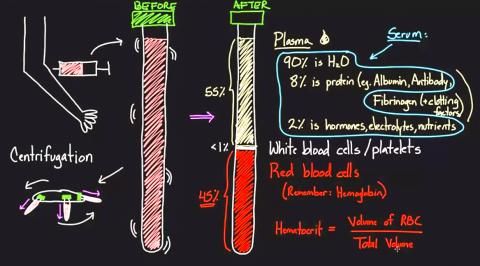 BEFORE
AFTER
Plasma
Serum:
90% is H₂O
8% is protein (eg. Albumin, Antibody,
Fibrinogen (+clotting
factors)
2% is hormones, electrolytes, nutrients
55%
<1%
White blood cells/platelets
45%
Red blood cells
(Remember: Hemoglobin)
Centrifugation
Hematocrit = Volume of RBC
Total Volume